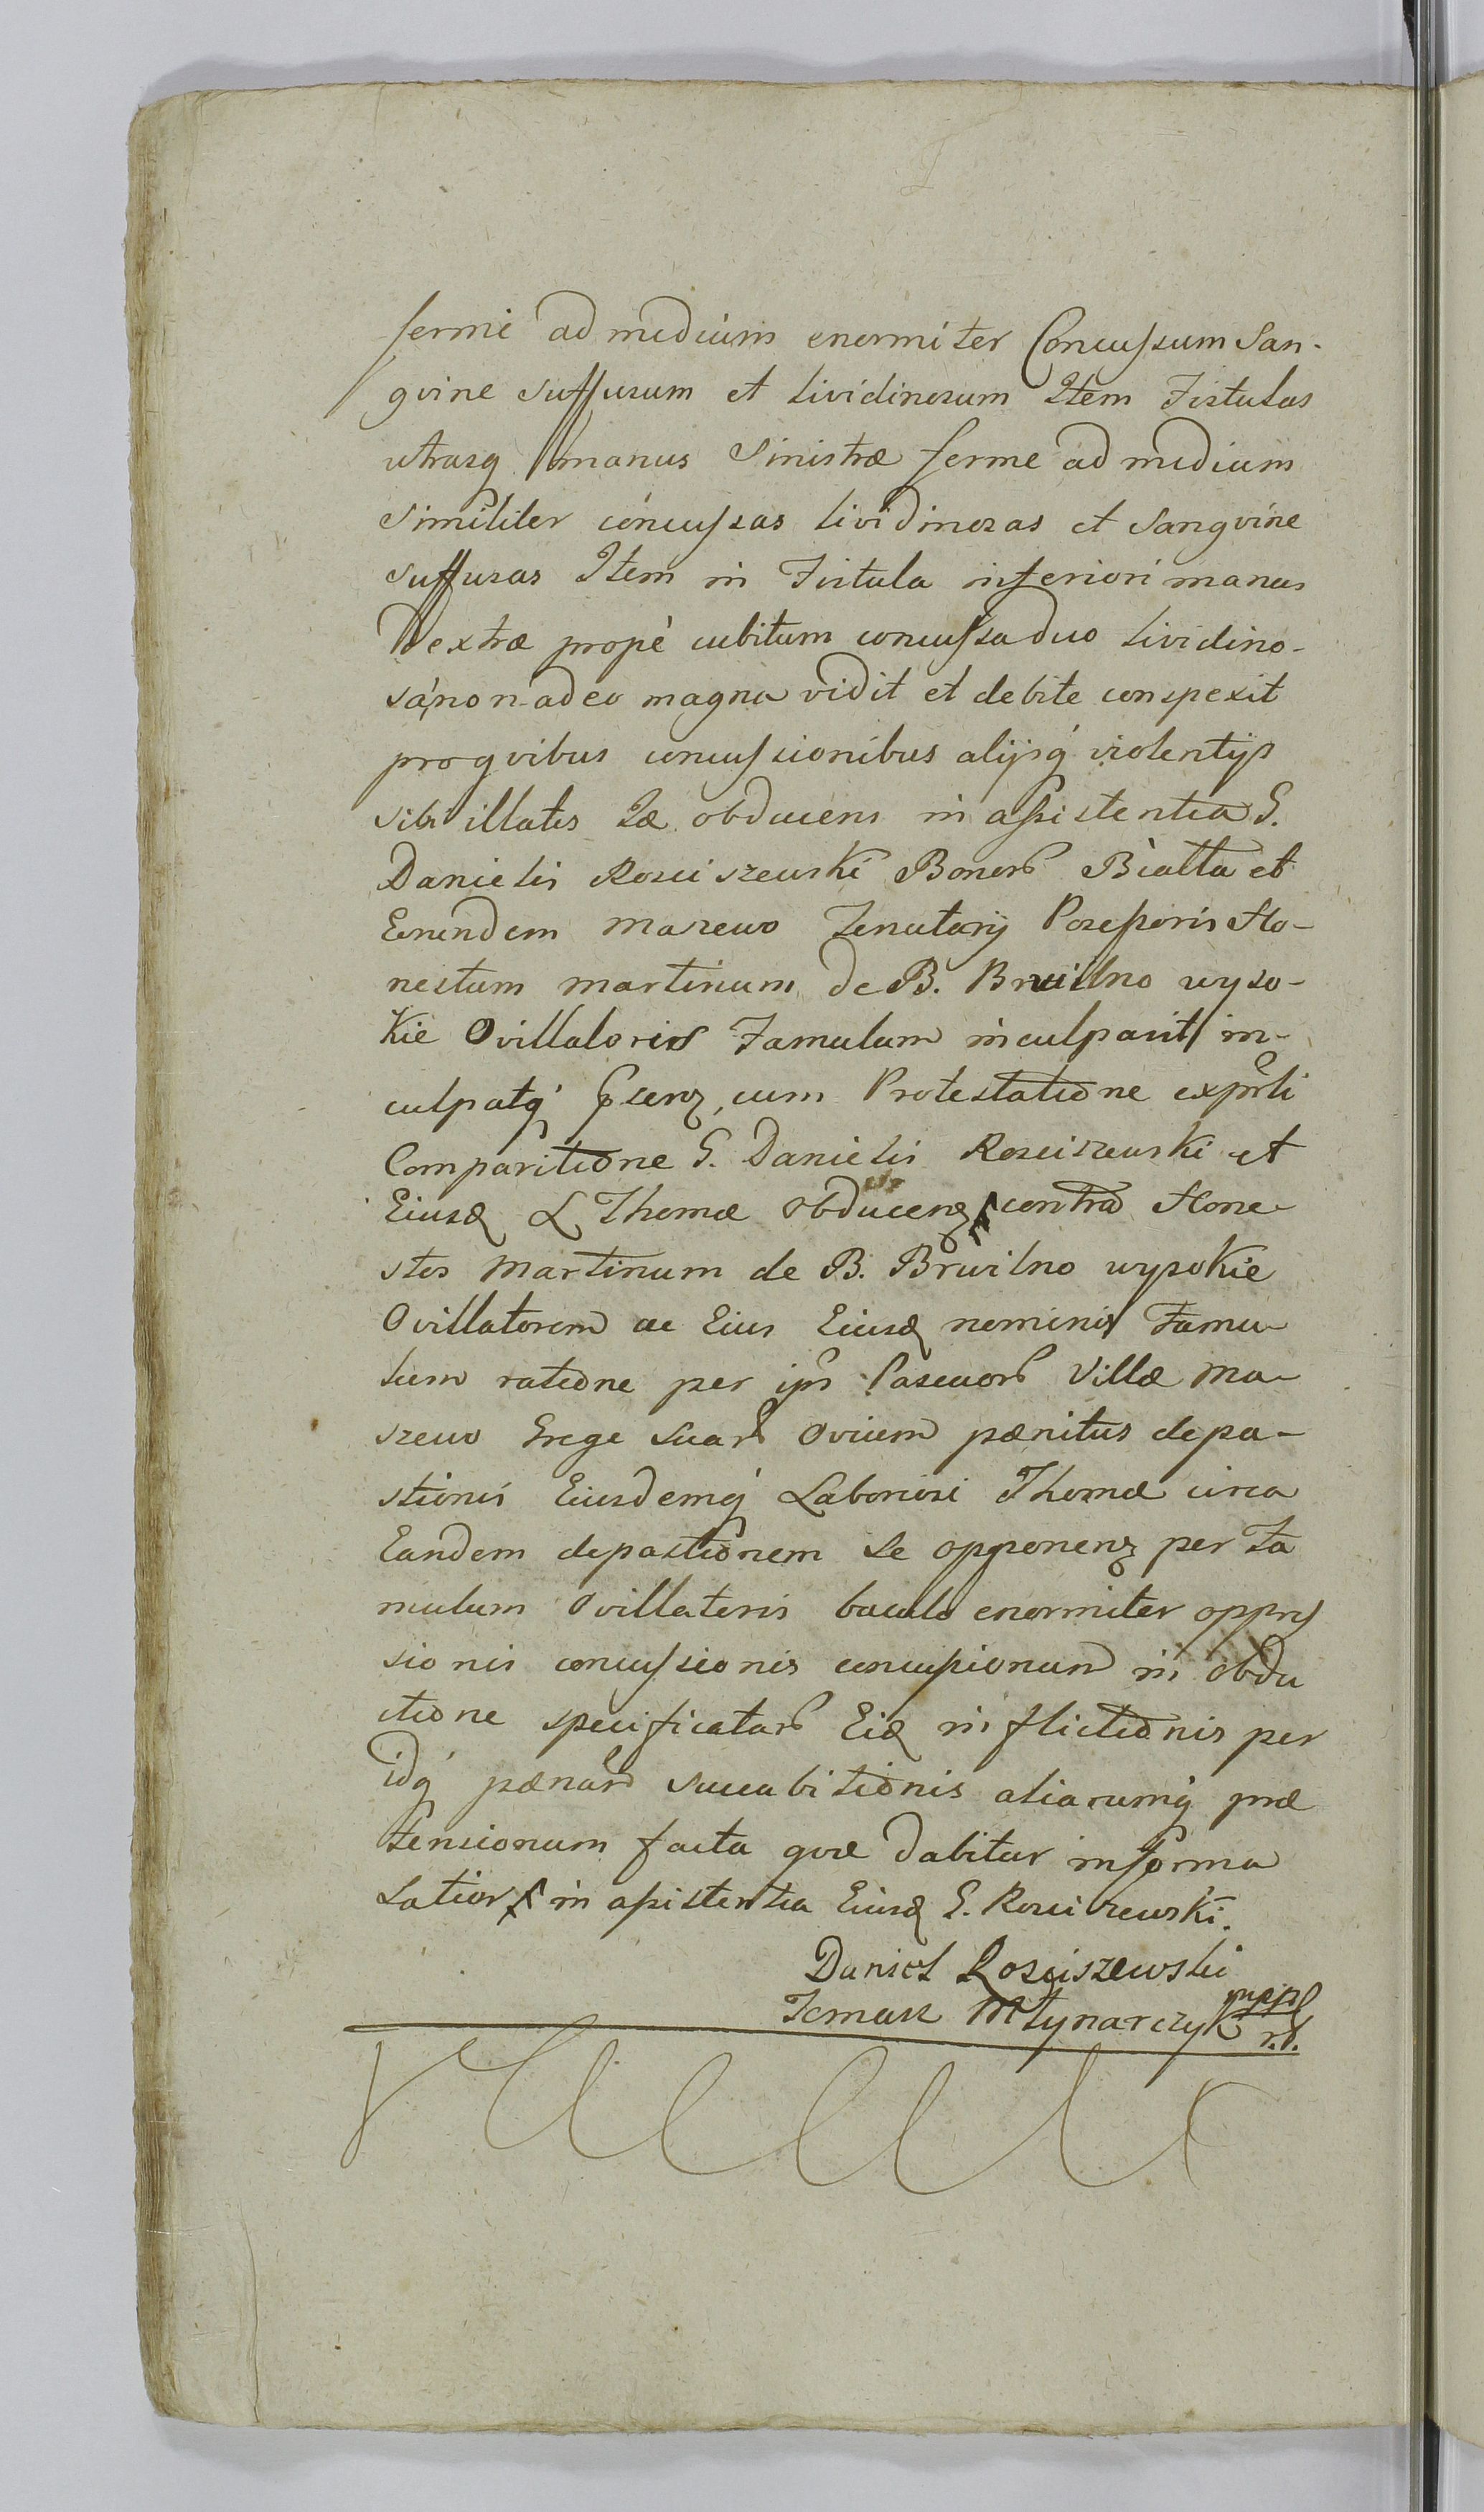 fermè ad medium enormiter Concussum San-
gvine suffusum et lividinosum Item Fistulas
utrasq manus Sinistræ ferme ad medium
Similiter concussas lividinosas et Sangvine
suffusas Item in Fistula inferiori manus
Dextræ propè cubitum concussa duo lividino-
sa, non adeo magna vidit et debite conspexit
pro qvibus concussionibus alijsq́ violentijs
sibi illatis Idæ obducens in assistentia G.
Danielis Rosciszewski Bonor Bialta et
Mazewo Tenutarij Possessoris Ho-
nestum Martinum de B. Brwilno wyso-
kie Ovillatoris Famulum inculpavit in-
culpatq́ cum Protestatione
Comparitione G. Danielis Rosciszewski et
Eiusd L Thomæ Obducen contra Hone-
stos Martinum de B. Brwilno wysokie
Ovillatorem ac Eius Eiusd nominis Famu-
lum ratione per ips Pascuor Villæ Ma-
szewo Grege suar Ovium pænitus depa-
stionis Eiusdemq́ Laboriosi Thomæ circa
Eandem depastionem se opponen per Fa
mulum Ovillatoris baculo enormiter oppres
sionis concussionis concussionum in obdu
ctione specificatar Eid inflictionis per
idq́ pænar succubitionis aliarumq́ præ
tensionum facta qvæ dabitur informa
latior in assistentia Eiusd G. Rosciszewski.
Daniel Rosciszewski
Tomasz Młynarczyk mpp